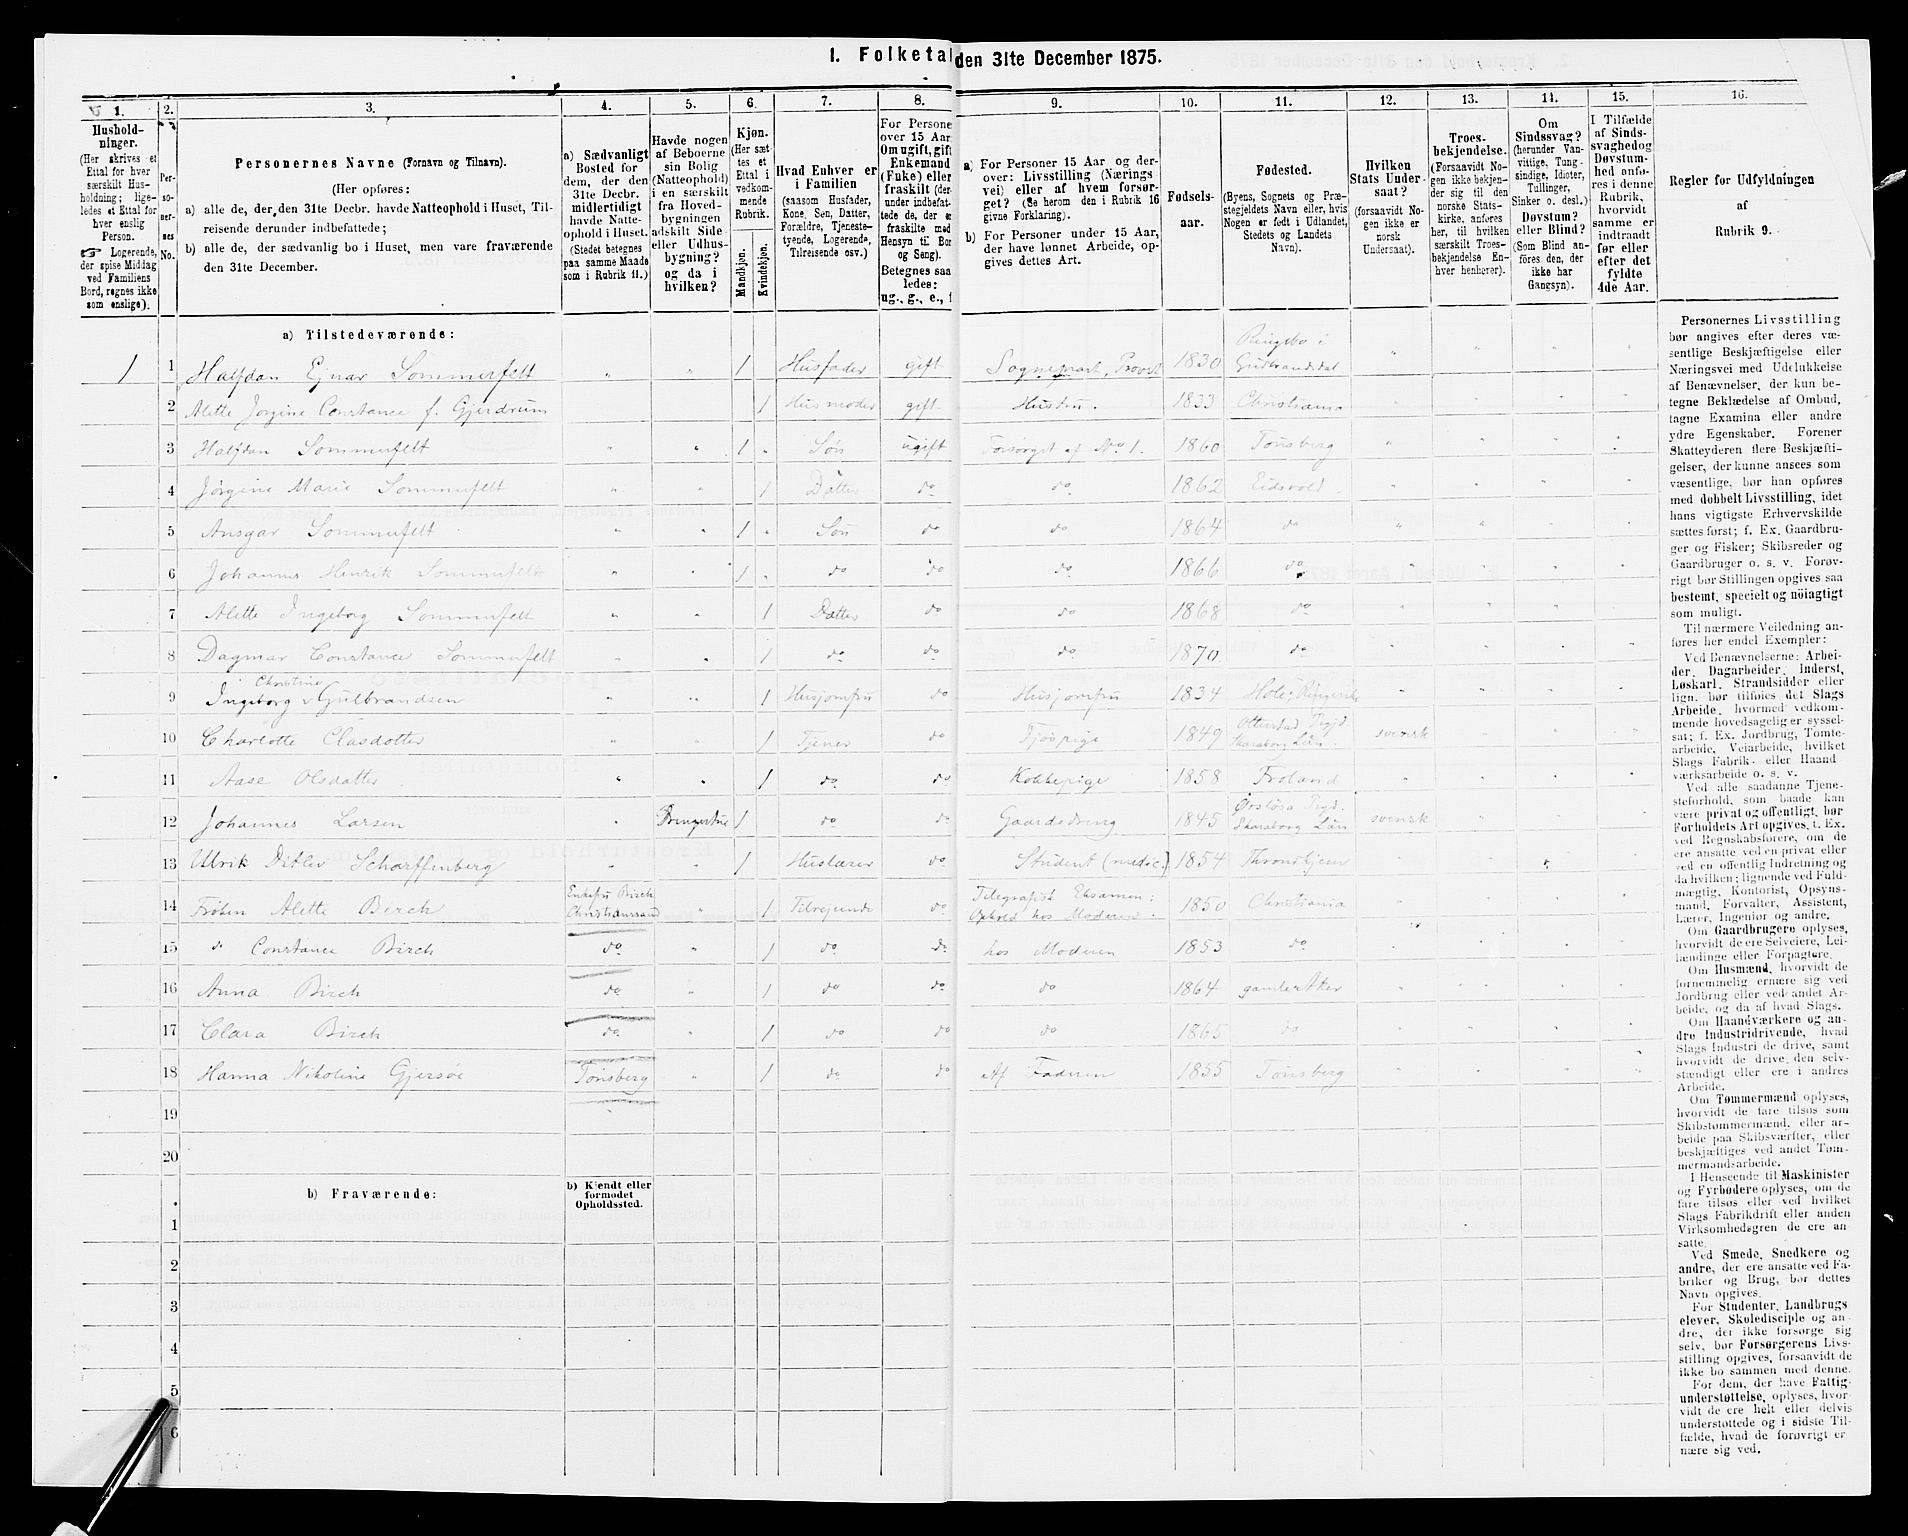 1. Folketal den 31te December 1875.
1. 2. 3. 4. 5. 6. 7. 8. 9. 10. 11. 12. 13. 14. 15. 16.
Hushold-
ninger.
(Her skrives et
Ettal for hver
særskilt Hus-
holdning; lige-
ledes et Ettal for
hver enslig
Person.
☞ Logerende,
der spise Middag
ved Familiens
Bord, regnes ikke
som enslige).
Per-
so-
ner-
nes
No.
Personernes Navne (Fornavn og Tilnavn).
(Her opføres:
a) alle de, der den 31te Decbr. havde Natteophold i Huset, Til-
reisende derunder indbefattede;
b) alle de, der sædvanlig bo i Huset, men vare fraværende
den 31te December.
a) Sædvanligt
Bosted for
dem, der den
31te Decbr.
midlertidigt
havde Natte-
ophold i Huset.
(Stedet betegnes
paa samme Maade
som i Rubrik 11.)
Havde nogen
af Beboerne
sin Bolig
(Natteophold)
i en særskilt
fra Hoved-
bygningen
adskilt Side
eller Udhus-
bygning?
og da i
hvilken?
Kjøn.
(Her sæt
tes et
Ettal i
vedkom-
mende
Rubrik.
Mandkjøn.
Kvindekjøn.
Hvad Enhver er
i Familien
(saasom Husfader,
Kone, Søn, Datter,
Forældre, Tjeneste-
tyende, Logerende,
Tilreisende osv.)
For Persone
over 15 Aar
Om ugift, gift
Enkemand
(Enke) eller
fraskilt (der-
under indbefat-
tede de, der e
fraskilte med
Hensyn til Bor
og Seng).
Betegnes saa
ledes:
ug., g., e., f
a) For Personer 15 Aar og der-
over: Livsstilling (Nærings
vei) eller af hvem forsør-
get? (Se herom den i Rubrik 16
givne Forklaring).
b) For Personer under 15 Aar,
der have lønnet Arbeide, op-
gives dettes Art.
Fødsels-
aar.
Fødested.
(Byens, Sognets og Præ-
stegjeldets Navn eller, hvis
Nogen er født i Udlandet,
Stedets og Landets
Navn).
Hvilken
Stats Under-
saat?
(forsaavidt No-
gen ikke er
norsk
Undersaat).
Troes-
bekjendelse.
(Forsaavidt No-
gen ikke bekjen-
der sig til den
norske Stats-
kirke, anføres
her, til hvilken
særskilt Troes-
bekjendelse En-
hver henhører).
Om
Sindssvag?
(herunder Van-
vittige, Tung-
sindige, Idioter,
Tullinger,
Sinker o. desl.)
Døvstum?
eller Blind?
(Som Blind an-
føres den, der
ikke har
Gangsyn).
I Tilfælde
af Sinds-
svaghed og
Døvstum-
hed anfø-
res i denne
Rubrik,
hvorvidt
samme er
indtraadt
før eller
efter det
fyldte
4de Aar.
Regler for Udfyldningen
af
Rubrik 9.
a) Tilstedeværende:
1 1 Halfdan Ejnar Sommerfelt " " 1 Husfader gift Sognepræst, Provst 1830 Ringebo i Gudbrandsdal
2 Alette Jørgine Constance f. Gjerdrum 1 Husmoder gift Hustru. 1833 Christiania
3 Halfdan Sommerfelt " " 1 Søn ugift Forsørget af No 1. 1860 Tønsberg
4 Jørgine Marie Sommerfelt " " 1 Datter do do 1862 Eidsvold
5 Ansgar Sommerfelt " " 1 Søn do do 1864 do
6 Johannes Henrik Sommerfelt " " 1 do do do 1866 do
7 Alette Ingeborg Sommerfelt " " 1 Datter do do 1868 do
8 Dagmar Constance Sommerfelt " " 1 do do do 1870 do
9 Ingeborg Christine Gulbrandsen " " 1 Husjomfru do Husjomfru 1834 Hole, Ringerike
10 Charlotte Clasdotter " " 1 Tjener do 1849 Otterstad Pgjd. Skaraborg Län svensk
11 Aase Olsdatter " " 1 do do Kokkepige 1858 Froland
12 Johannes Larsen " Drengestue 1 do do Gaardsdreng 1845 Skaraborg Län svensk
13 Ulrik Ditlev Scharffenberg " " 1 Huslærer do Student (medic.) 1854 Throndhjem
14 Frøken Alette Birch Enkefru Birch Christianssand " 1 Tilreisende do Telegrafist Eksamen; Ophold hos Moderen. 1850 Christiania
15 do Constance Birch do " 1 do do hos Moderen 1853 do
16 Anna Birch do " 1 do do do 1864 gamle Aker
17 Clara Birch do " 1 do do do 1865 do
18 Hanna Nikoline Gjersøe Tønsberg " 1 do do Af Faderen 1855 Tønsberg
19
20
b) Fraværende:
b) Kjendt eller
formodet
Opholdssted.
1
2
3
4
5
6
Personernes Livsstilling
bør angives efter deres væ-
sentlige Beskjæftigelse eller
Næringsvei med Udelukkelse
af Benævnelser, der kun be-
tegne Beklædelse af Ombud,
tagne Examina eller andre
ydre Egenskaber. Forener
Skatteyderen flere Beskjæfti-
gelser, der kunne ansees som
væsentlige, bør han opføres
med dobbelt Livsstilling, idet
hans vigtigste Erhvervskilde
sættes først; f. Ex. Gaardbru-
ger og Fisker; Skibsreder og
Gaardbruger o. s. v. Forøv-
rigt bør Stillingen opgives saa
bestemt, specielt og nöiagtigt
som muligt.
Til nærmere Veiledning an-
føres her endel Exempler:
Ved Benævnelserne: Arbei-
der, Dagarbeider, Inderst,
Løskarl, Strandsidder eller
lign. bør tilføies det Slags
Arbeide, hvormed vedkom-
mende hovedsagelig er syssel-
sat; f. Ex. Jordbrug, Tomte-
arbeide, Veiarbeide, hvilket
Slags Fabrik- eller Haand
værksarbeide o. s. v.
Ved alle saadanne Tjene-
steforhold, som baade kan
være privat og offentligt, bør
Forholdets Art opgives, f. Ex.
ved Regnskabsførere, om de
ere ansatte ved en privat eller
ved en offentlig Indretning og
da hvilken; lignende ved Fuld-
mægtig, Kontorist, Opsyns-
mand, Forvalter, Assistent,
Lærer, Ingeniør og andre.
Om Gaardbrugere oplyses,
hvorvidt de ere Selveiere, Lei-
lændinge eller Forpagtere.
Om Husmænd, hvorvidt de
fornemmelig ernære sig ved
Jordbrug eller ved andet Ar-
beide, og da af hvad Slags.
Om Haandværkere og an-
dre Industridrivende, hvad
Slags Industri de drive, samt
hvorvidt de drive den selv-
stændigt eller ere i andres
Arbeide.
Om Tømmermænd oplyses,
hvorvidt de fare tilsøs som
Skibstømmermænd, eller ar-
beide paa Skibsværfter, eller
beskjæftiges ved andet Tøm-
mermandsarbeide.
I Henseende til Maskinister
og Fyrbødere oplyses, om de
fare tilsøs eller ved hvilket
Slags Fabrikdrift eller anden
Virksomhedsgren de ere an-
satte.
Ved Smede, Snedkere og
andre, der ere ansatte ved Fa-
briker og Brug, bør dettes
Navn opgives.
For Studenter, Landbrugs
elever, Skoledisciple og an-
dre, der ikke forsørge sig
selv, bør Forsørgerens Livs-
stilling opgives, forsaavidt de
ikke bo sammen med denne.
For dem, der have Fattig-
understøttelse, oplyses, hvor-
vidt de ere helt eller delvis
understøttede og i sidste Til-
fælde, hvad de forøvrigt er
nære sig ved.